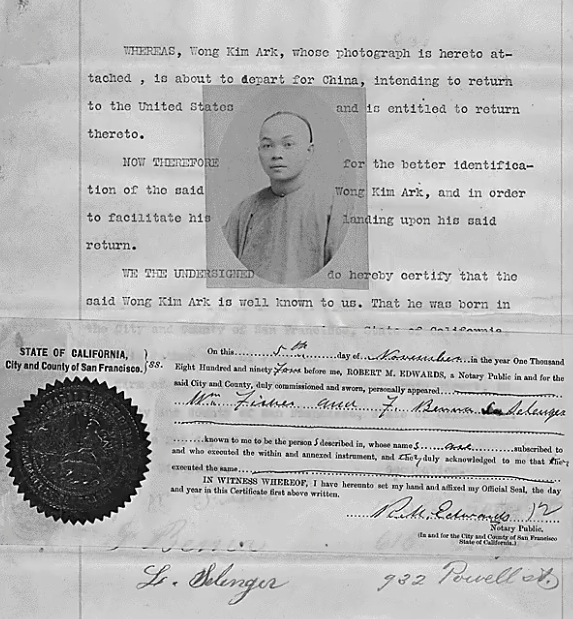 WHEREAS, Wong Kim Ark, whose photograph is hereto at-
tached , is about to depart for China, intending to return
to the United States and is entitled to return
thereto.
NOW THEREFORE for the better identifica-
tion of the said Wong Kim Ark, and in order
to facilitate his landing upon his said
return.
WE THE UNDERSIGNED do hereby certify that the
said Wong Kim Ark is well known to us. That he was born in
the City and County of San Francisco, State of California
STATE OF CALIFORNIA,
City and County of San Francisco. } ss.
On this 5th day of November in the year One Thousand
Eight Hundred and ninety four before me, ROBERT M. EDWARDS, a Notary Public in and for the
said City and County, duly commissioned and sworn, personally appeared
Wm Fisher and F. Benna L Selenger
known to me to be the person s described in, whose name s are subscribed to
and who executed the within and annexed instrument, and they duly acknowledged to me that they
executed the same
IN WITNESS WHEREOF, I have hereunto set my hand and affixed my Official Seal, the day
and year in this Certificate first above written.
R. M. Edwards
Notary Public.
(In and for the City and County of San Francisco
State of California.)
L. Selenger 932 Powell st.